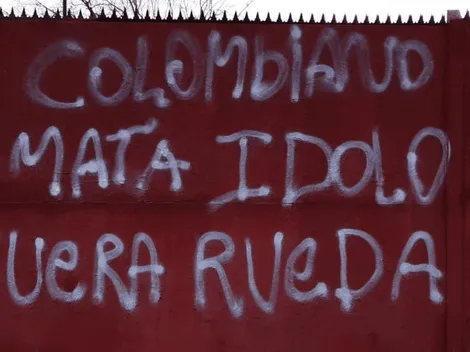 COLOMbIANO
MATA IDOLO
UeRA RUeDA